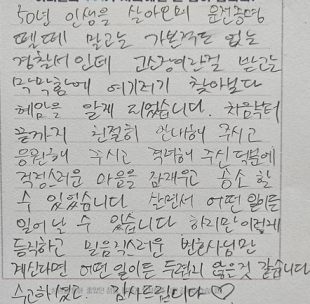 50년 인생을 살아오며 운전면허
뗄때 말고는 가본적도 없는
경찰서인데 고소장이란걸 받고는
막막함에 여기저기 찾아보다
헤암을 알게 되었습니다. 처음부터
끝까지 친절히 안내해 주시고
응원해 주시고 격려해 주신 덕분에
걱정스러운 마음을 잠재우고 승소 할
수 있었습니다. 살면서 어떤 일이든
일어날 수 있습니다 하지만 이렇게
듬직하고 믿음직스러운 변호사님만
계신다면 어떤 일이든 두렵지 않은것 같습니다
수고하셨고 감사드립니다 ♡